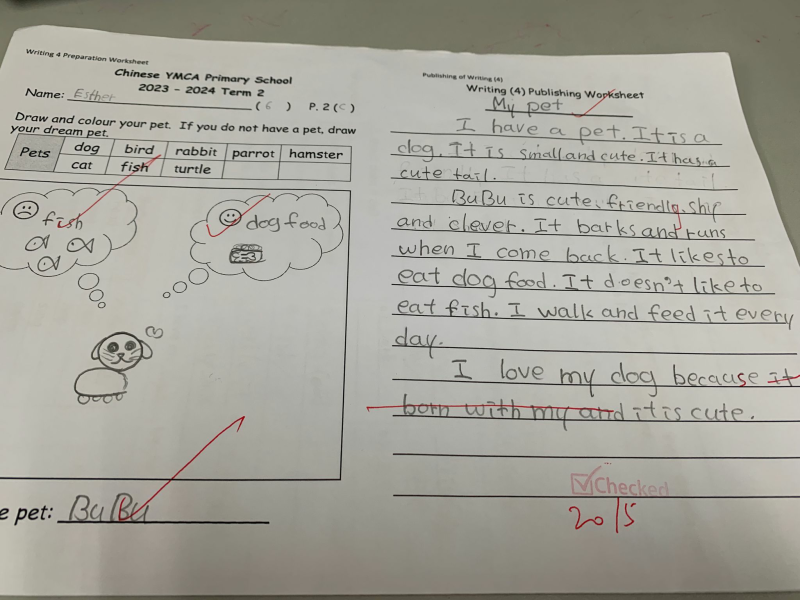 Writing 4 Preparation Worksheet
Chinese YMCA Primary School
2023 - 2024 Term 2
Name: Esther ( 6 ) P. 2 ( C )
Draw and colour your pet. If you do not have a pet, draw
your dream pet.
Pets dog bird rabbit parrot hamster
cat fish turtle
fish
dog food
e pet: BuBu
Publishing of Writing (4)
Writing (4) Publishing Worksheet
My pet
I have a pet. It is a
dog. It is small and cute. It has a
cute tail.
BuBu is cute, friendly, ship
and clever. It barks and runs
when I come back. It likes to
eat dog food. It doesn't like to
eat fish. I walk and feed it every
day.
I love my dog because it
born with my and it is cute.
Checked
20/5